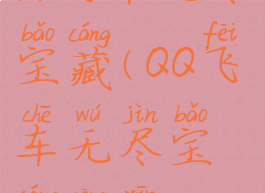 bǎo cáng fēi
宝藏(QQ飞
chē wú jìn bǎo
车无尽宝